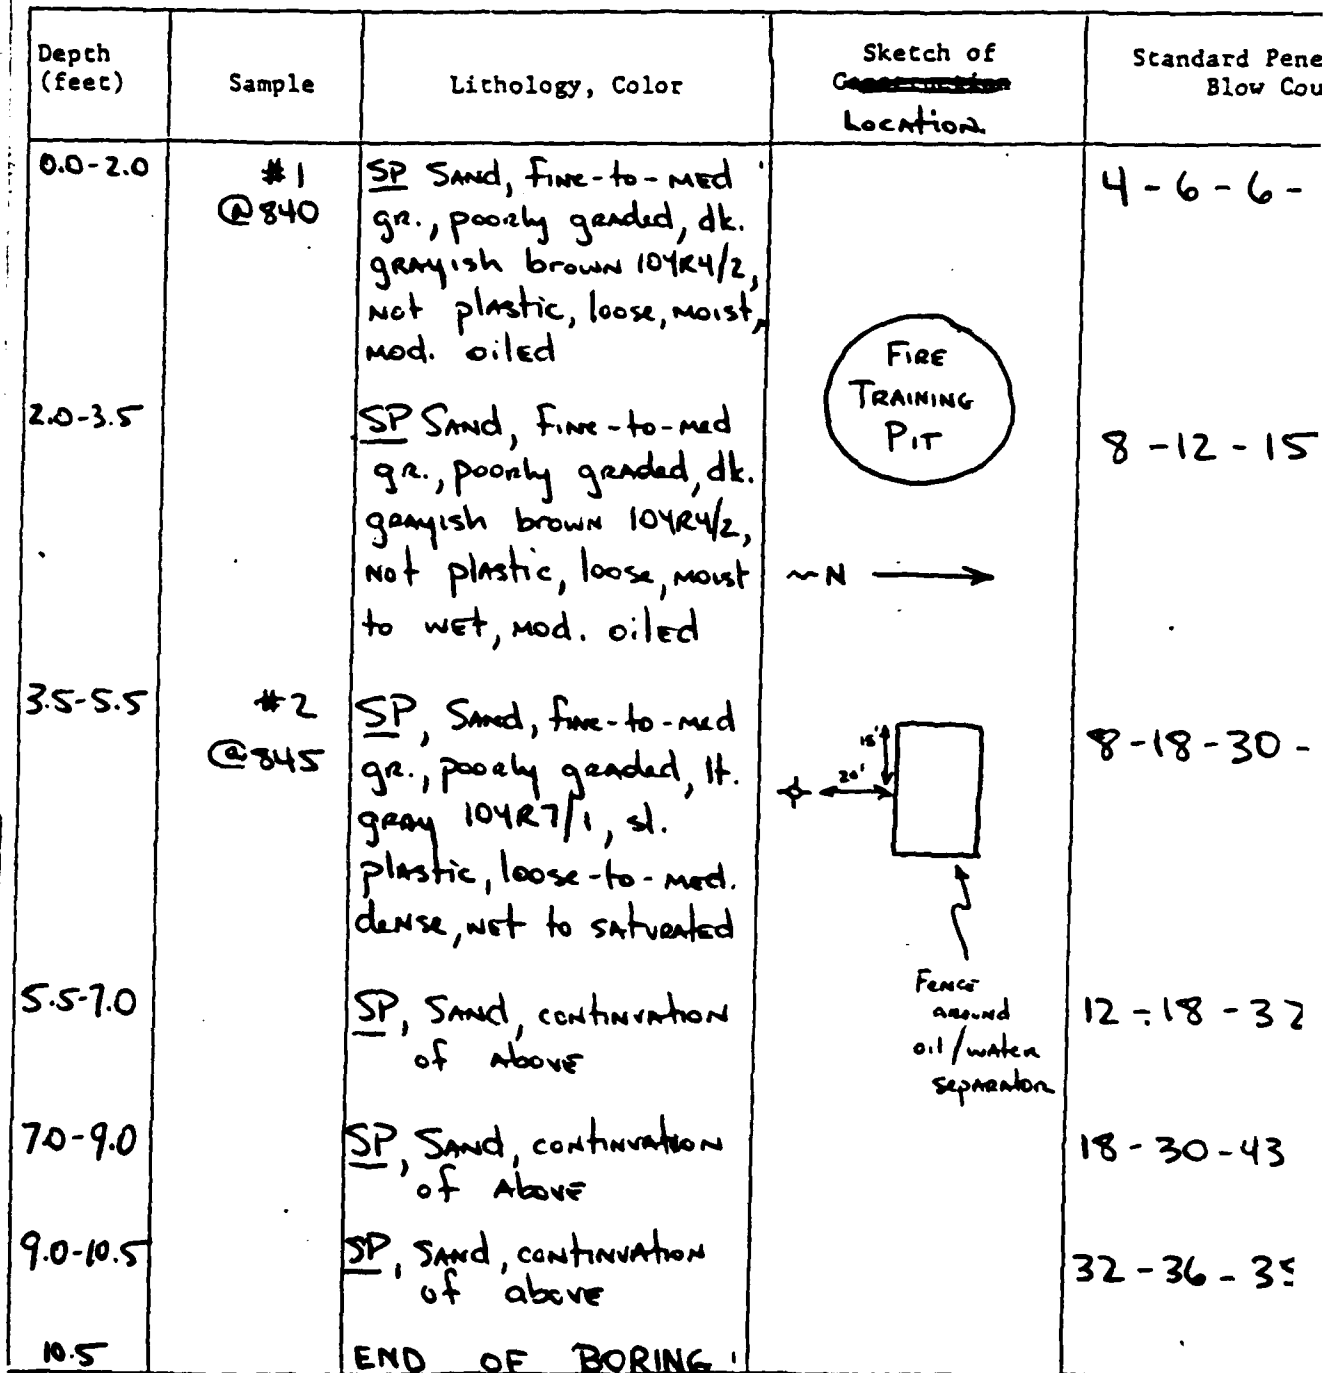 Depth
(feet)
Sample
Lithology, Color
Sketch of
Location
Standard Pene
Blow Cou
0.0-2.0
#1
@840
SP SAND, fine-to-med
gr., poorly graded, dk.
grayish brown 10YR4/2,
not plastic, loose, moist,
mod. oiled
4-6-6-
2.0-3.5
SP SAND, fine-to-med
gr., poorly graded, dk.
grayish brown 10YR4/2,
not plastic, loose, moist
to wet, mod. oiled
8-12-15
3.5-5.5
#2
@845
SP, SAND, fine-to-med
gr., poorly graded, lt.
gray 10YR7/1, sl.
plastic, loose-to-med.
dense, wet to saturated
8-18-30-
5.5-7.0
SP, SAND, continuation
of above
12-18-32
7.0-9.0
SP, SAND, continuation
of above
18-30-43
9.0-10.5
SP, SAND, continuation
of above
32-36-
10.5
END OF BORING
FIRE
TRAINING
PIT
~N
15'
20'
Fence
around
oil/water
separator